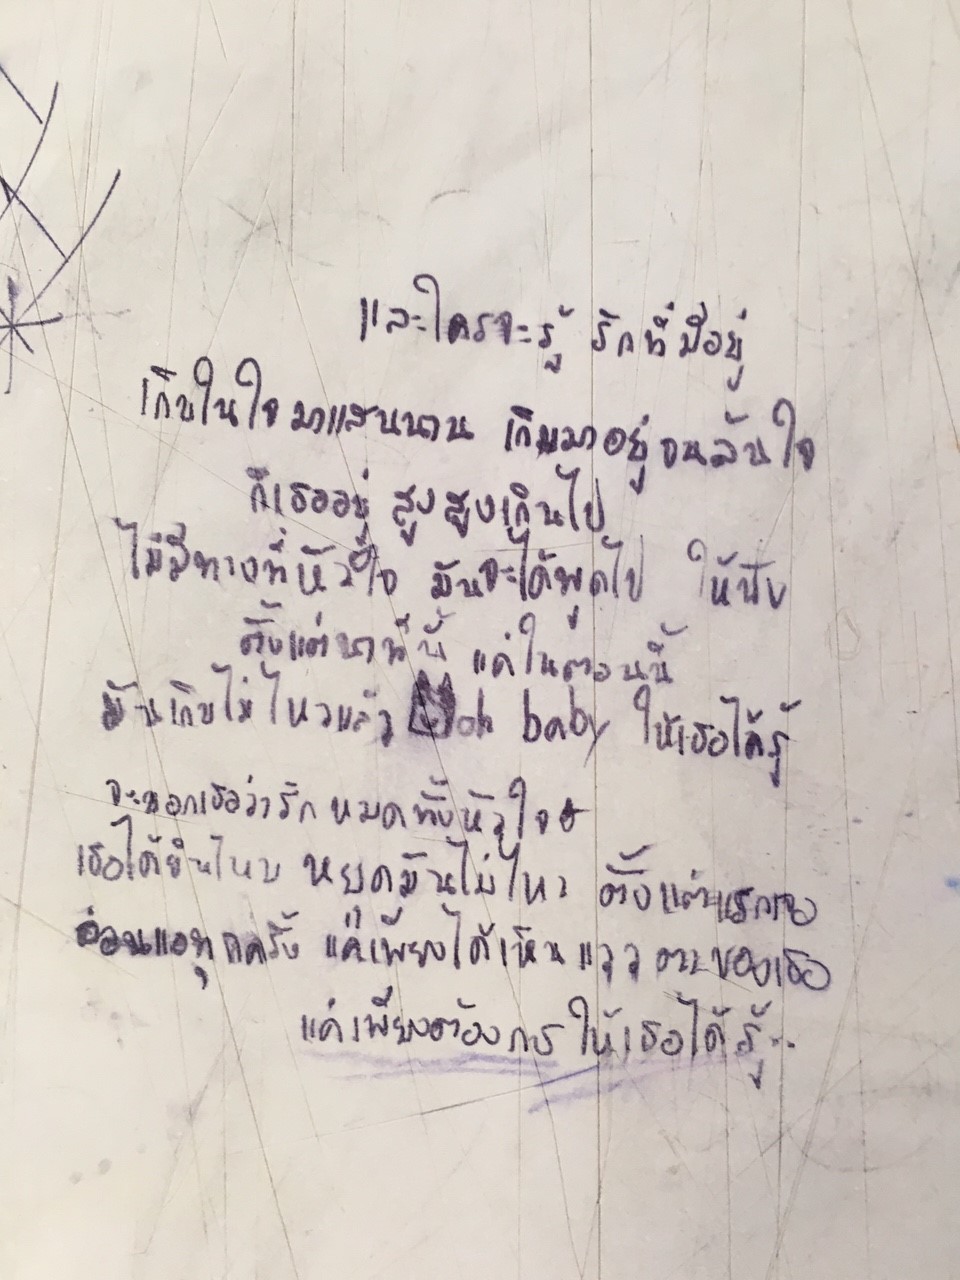 และใครจะรู้ รักที่มีอยู่
เก็บในใจมาแสนนาน เก็บมาอยู่จนล้นใจ
ก็เธออยู่ สูงสูงเกินไป
ไม่มีทางที่หัวใจ มันจะได้พูดไป ให้ฟัง
ตั้งแต่นาทีนี้ แค่ในตอนนี้
มันเก็บไม่ไหวแล้ว oh baby ให้เธอได้รู้
จะบอกเธอว่ารัก หมดทั้งหัวใจ
เธอได้ยินไหม หยุดมันไม่ไหว ตั้งแต่แรกเจอ
อ่อนแอทุกครั้ง แค่เพียงได้เห็นแววตาของเธอ
แค่เพียงต้องการ ให้เธอได้รู้..